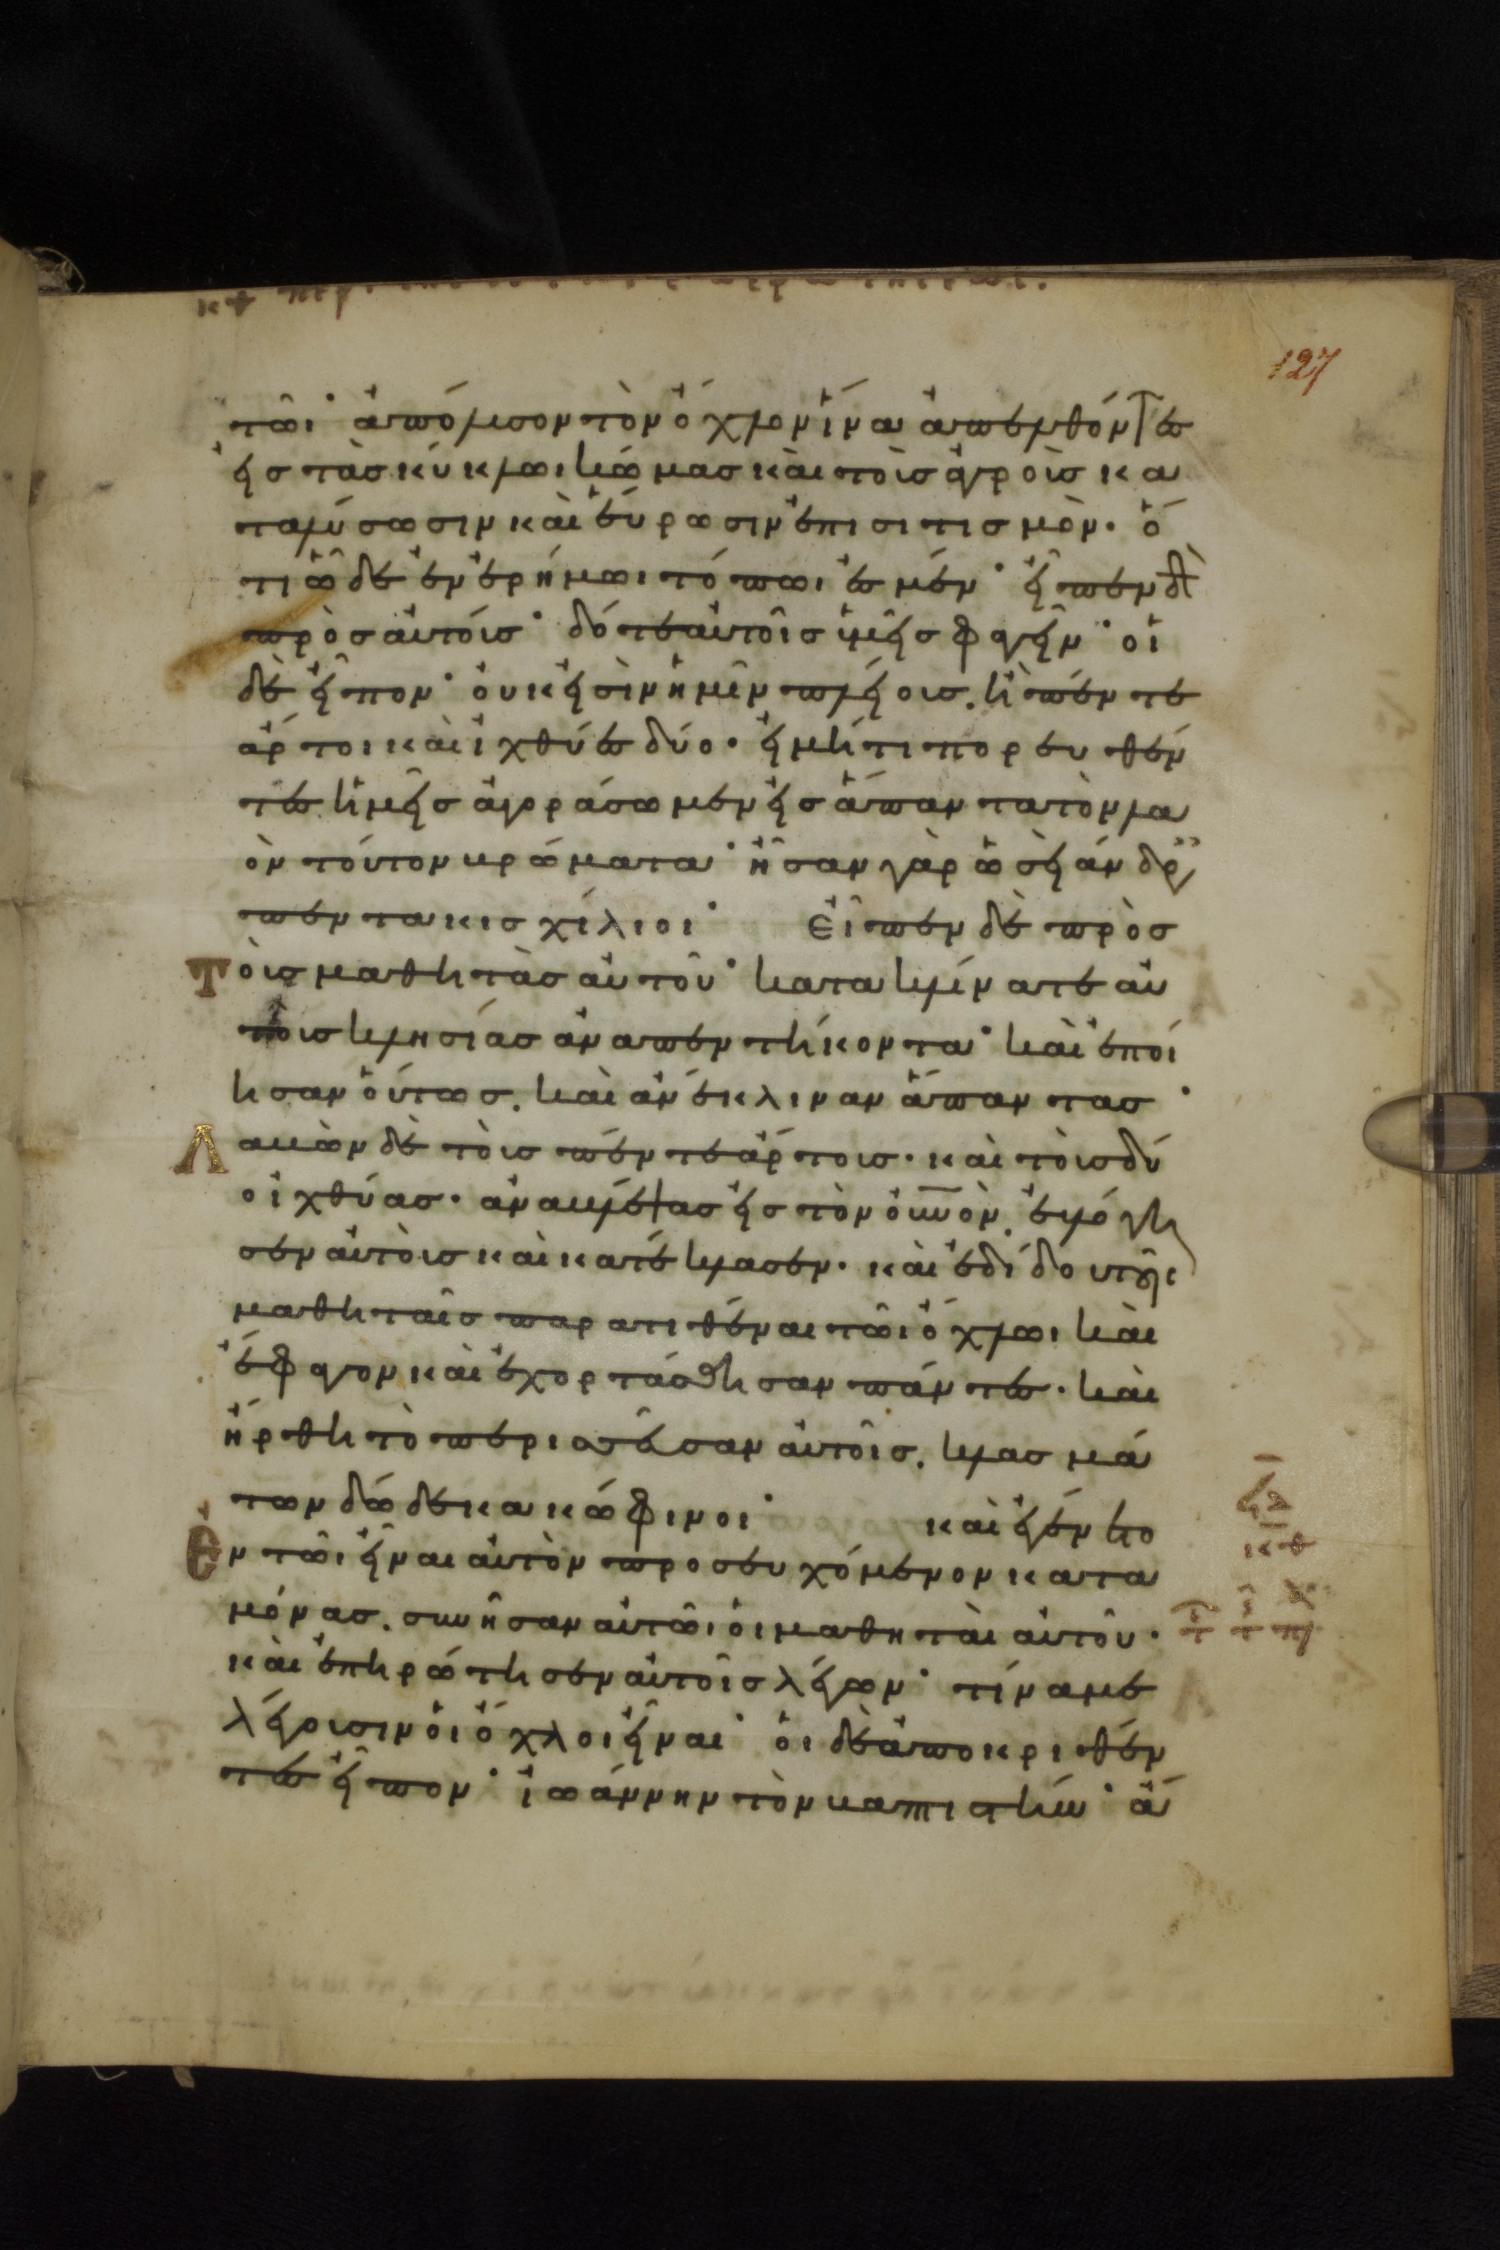 127
τῶι· ἀπόλυσον τὸν ὄχλον ἵνα ἀπελθόντες
εἰς τὰς κύκλωι κώμας καὶ τοὺς ἀγροὺς κα
ταλύσωσιν καὶ εὕρωσιν ἐπισιτισμόν· ὅ
τι ὧδε ἐν ἐρήμωι τόπωι ἐσμέν· εἶπεν δὲ
πρὸς αὐτούς· δότε αὐτοῖς ὑμεῖς φαγεῖν· οἱ
δὲ εἶπον· οὐκ εἰσὶν ἡμῖν πλείους. ἢ πέντε
ἄρτοι καὶ ἰχθύες δύο· εἰ μήτι πορευθέν
τες ἡμεῖς ἀγοράσωμεν εἰς ἅπαντα τὸν λα
ὸν τοῦτον βρώματα· ἦσαν γὰρ ὡσεὶ ἄνδρ
πεντακισχίλιοι· Εἶπεν δὲ πρὸς
τοὺς μαθητὰς αὐτοῦ· κατακλίνατε αὐ
τοὺς κλησίας ἀνὰ πεντήκοντα· καὶ ἐποί
ησαν οὕτως. καὶ ἀνέκλιναν ἅπαντας·
Λαβὼν δὲ τοὺς πέντε ἄρτους· καὶ τοὺς δύ
ο ἰχθύας· ἀναβλέψας εἰς τὸν οὐνὸν. εὐλόγη
σεν αὐτοὺς καὶ κατέκλασεν· καὶ ἐδίδου τοῖς
μαθηταῖς παρατιθέναι τῶι ὄχλωι καὶ
ἔφαγον καὶ ἐχορτάσθησαν πάντες· καὶ
ἤρθη τὸ περισσεῦσαν αὐτοῖς. κλασμά
των δώδεκα κόφινοι· καὶ ἐγένετο
Ἐν τῶι εἶναι αὐτὸν προσευχόμενον κατα
μόνας. συνῆσαν αὐτῶι οἱ μαθηταὶ αὐτοῦ·
καὶ ἐπηρώτησεν αὐτοὺς λέγων· τίνα με
λέγουσιν οἱ ὄχλοι εἶναι· οἱ δὲ ἀποκριθέν
τες εἶπον· ἰωάννην τὸν βαπτιστήν· ἄ